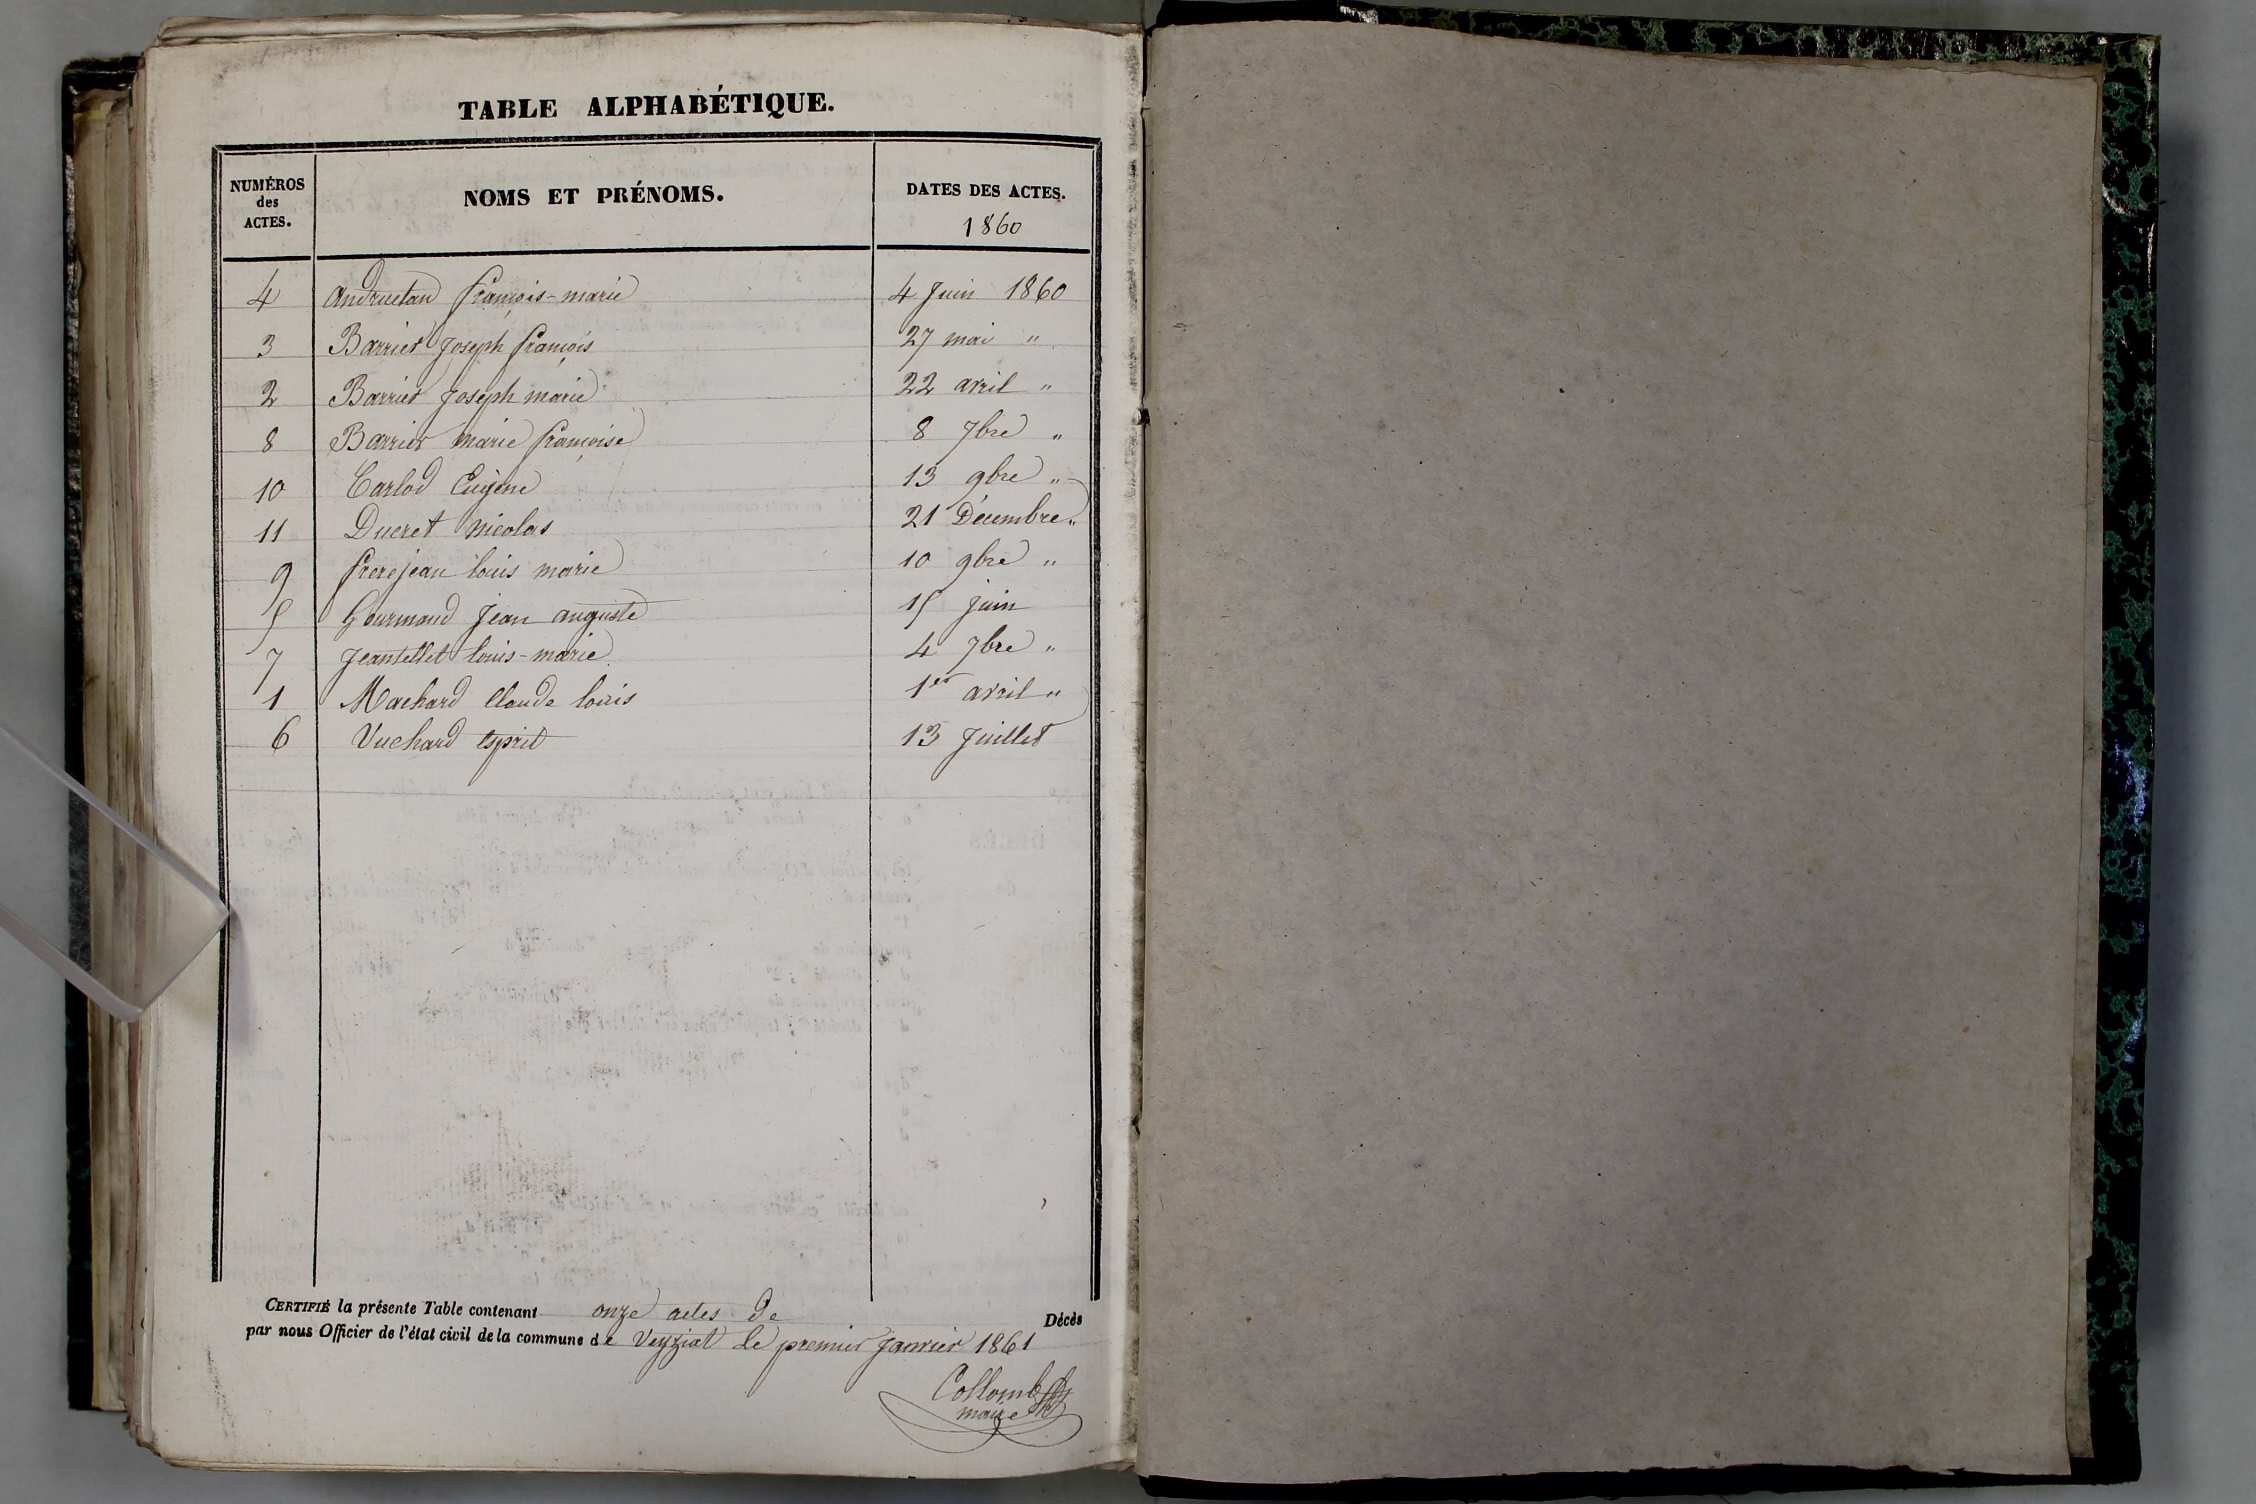 TABLE ALPHABÉTIQUE.
NUMÉROS des ACTES. NOMS ET PRÉNOMS. DATES DES ACTES.
1860
4 Andruetan françois-marie 4 Juin 1860
3 Barrier Joseph françois 27 mai "
2 Barrier Joseph marie 22 avril "
8 Barrier marie françoise 8 7bre "
10 Carlod Eugène 13 9bre "
11 Ducret nicolas 21 Décembre "
9 frerejean louis marie 10 9bre "
5 Gourmand Jean auguste 15 juin
7 Jeantellet louis-marie 4 7bre "
1 Machard Claude louis 1er avril "
6 Vuchard Esprit 13 Juillet
CERTIFIÉ la présente Table contenant onze actes de Décès
par nous Officier de l'état civil de la commune de Veyziat le premier Janvier 1861
Collomb
maire